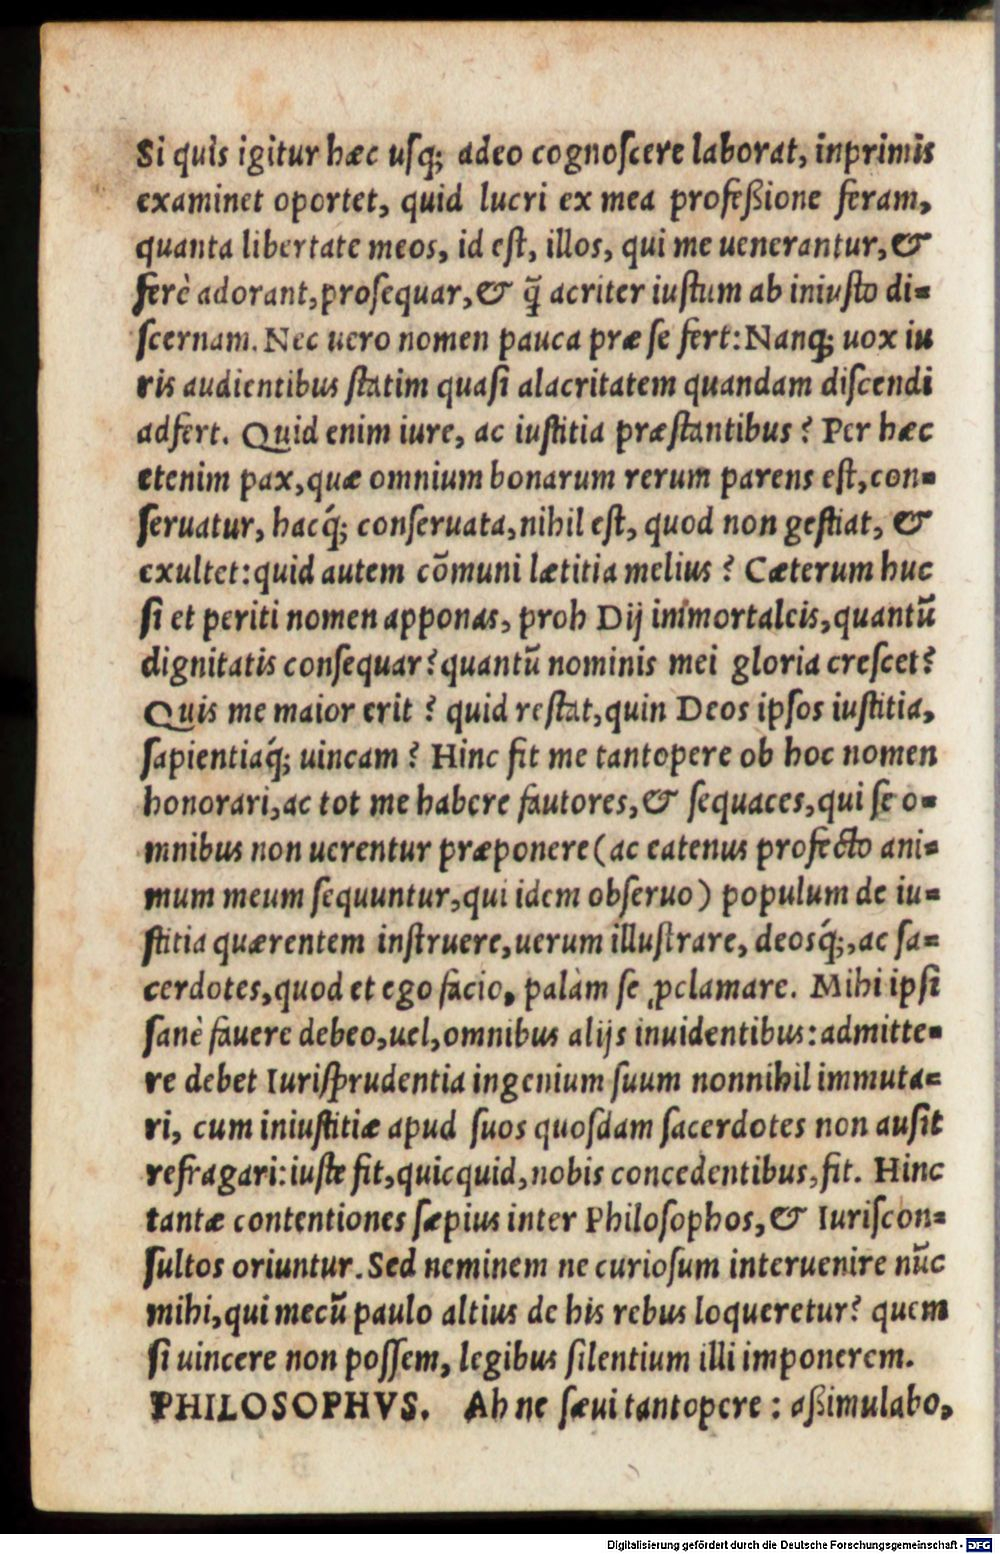 Si quis igitur hæc usq; adeo cognoſcere laborat, inprimis
examinet oportet, quid lucri ex mea profeßione feram,
quanta libertate meos, id eſt, illos, qui me uenerantur, &
ferè adorant, proſequar, & q̃ acriter iuſtum ab iniuſto di=
ſcernam. Nec uero nomen pauca præ ſe fert: Nanq; uox iu
ris audientibus ſtatim quaſi alacritatem quandam diſcendi
adfert. Quid enim iure, ac iuſtitia præſtantibus? Per hæc
etenim pax, quæ omnium bonarum rerum parens eſt, con=
ſeruatur, hacq́; conſeruata, nihil eſt, quod non geſtiat, &
exultet: quid autem cõmuni lætitia melius? Cæterum huc
ſi et periti nomen apponas, proh Dij immortaleis, quantũ
dignitatis conſequar? quantũ nominis mei gloria creſcet?
Quis me maior erit? quid reſtat, quin Deos ipſos iuſtitia,
ſapientiaq́; uincam? Hinc fit me tantopere ob hoc nomen
honorari, ac tot me habere fautores, & ſequaces, qui ſe o=
mnibus non uerentur præponere (ac eatenus profecto ani=
mum meum ſequuntur, qui idem obſeruo) populum de iu=
ſtitia quærentem inſtruere, uerum illuſtrare, deosq́;, ac ſa=
cerdotes, quod et ego facio, palàm ſe ꝓclamare. Mihi ipſi
ſanè fauere debeo, uel, omnibus alijs inuidentibus: admitte=
re debet Iuriſprudentia ingenium ſuum nonnihil immuta=
ri, cum iniuſtitiæ apud ſuos quoſdam ſacerdotes non auſit
refragari: iuſte fit, quicquid, nobis concedentibus, fit. Hinc
tantæ contentiones ſæpius inter Philoſophos, & Iuriſcon=
ſultos oriuntur. Sed neminem ne curioſum interuenire nũc
mihi, qui mecũ paulo altius de his rebus loqueretur? quem
ſi uincere non poſſem, legibus ſilentium illi imponerem.
PHILOSOPHVS. Ah ne ſæui tantopere: aßimulabo,
Digitalisierung gefördert durch die Deutsche Forschungsgemeinschaft - DFG